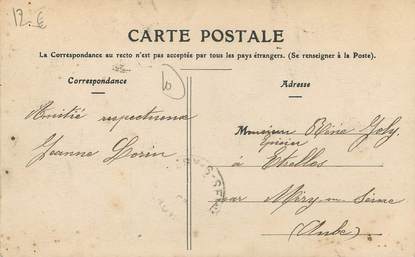 12.€
CARTE POSTALE
La Correspondance au recto n'est pas acceptée par tous les pays étrangers. (Se renseigner à la Poste).
Correspondance
Amitié respectueuse
Jeanne Lorin
Adresse
Monsieur Réné Joly
Epicier
à Etrelles
par Méry-sur-Seine
(Aube)